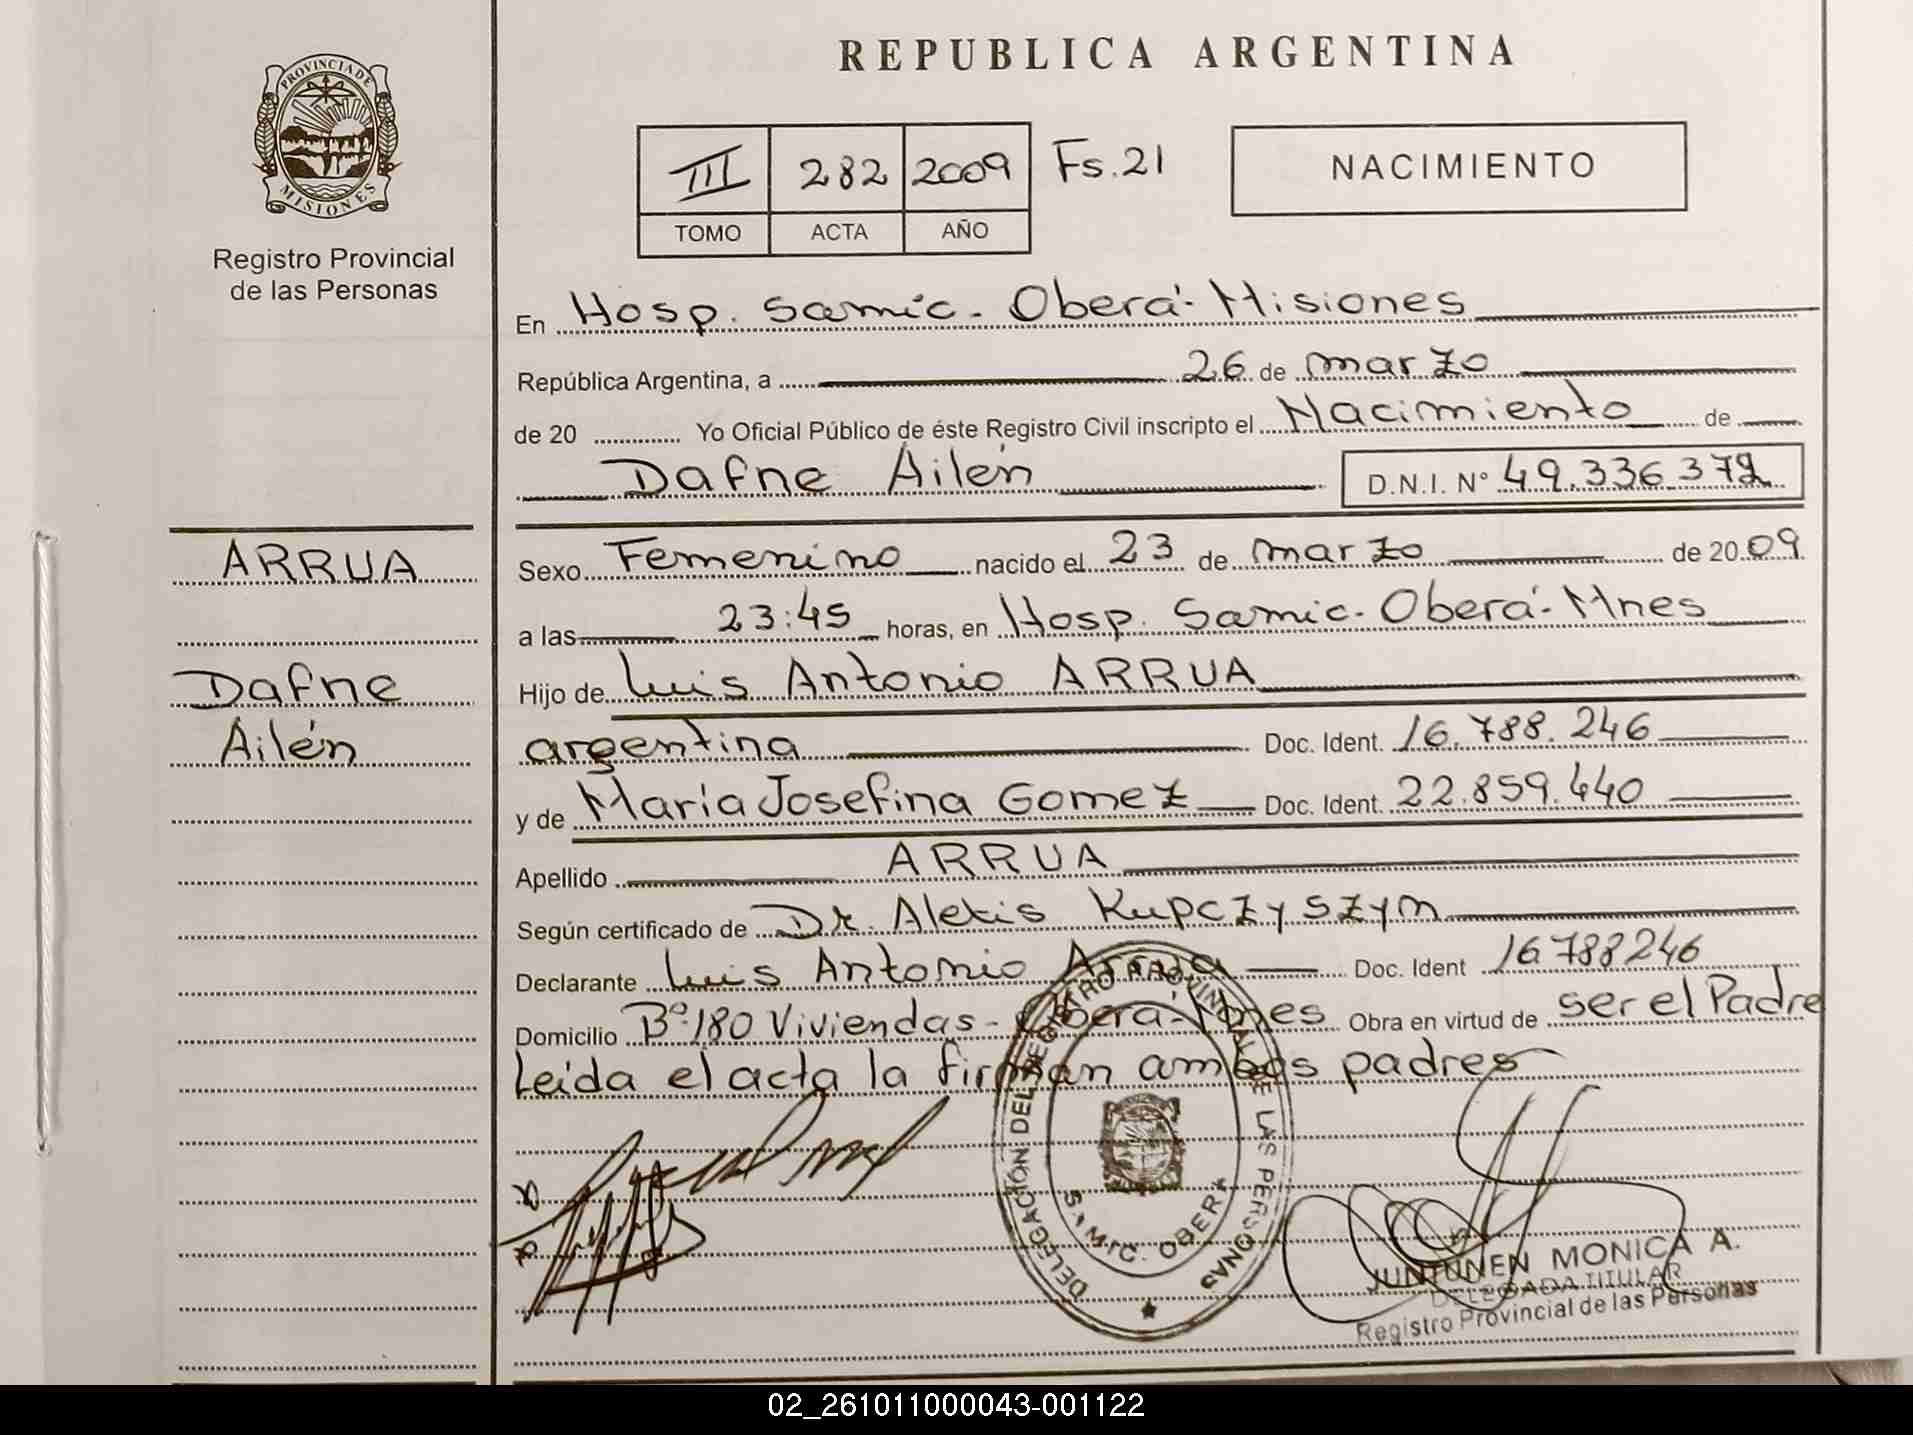 PROVINCIA DE
MISIONES
Registro Provincial
de las Personas
ARRUA
Dafne
Ailén
REPUBLICA ARGENTINA
III 282 2009 Fs. 21
TOMO ACTA AÑO
NACIMIENTO
En Hosp. Samic. Oberá - Misiones
República Argentina, a 26 de marzo
de 20 Yo Oficial Público de éste Registro Civil inscripto el Nacimiento de
Dafne Ailén D.N.I. N° 49.336.372
Sexo Femenino nacido el 23 de marzo de 2009
a las 23:45 horas, en Hosp. Samic - Oberá - Mnes
Hijo de Luis Antonio ARRUA
argentina Doc. Ident. 16.788.246
y de María Josefina Gomez Doc. Ident. 22.859.440
Apellido ARRUA
Según certificado de Dr. Alexis Kupczyszyn
Declarante Luis Antonio Arrua Doc. Ident 16788246
Domicilio Bº 180 Viviendas - Oberá - Mnes Obra en virtud de ser el Padre
Leída el acta la firman ambos padres
DELEGACIÓN DEL REGISTRO PROVINCIAL DE LAS PERSONAS
SAMIC. OBERA
JUNTUNEN MONICA A.
DELEGADA TITULAR
Registro Provincial de las Personas
02_261011000043-001122